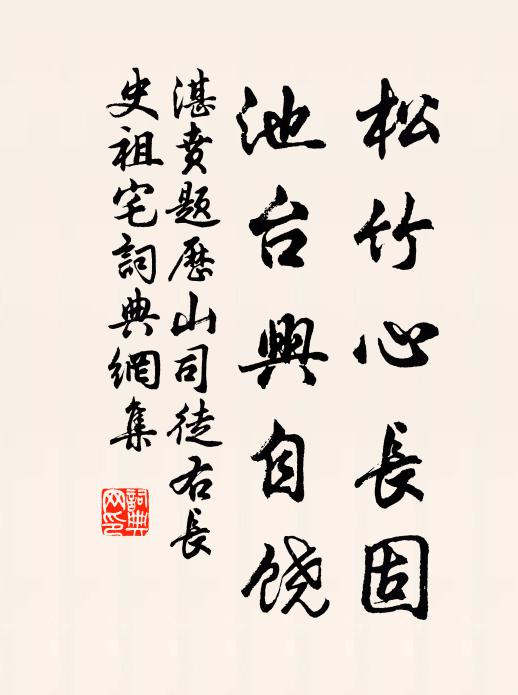 松竹心長固
池台興自饶
湛賁題歷山司徒右長
史祖宅詞典網集
詞典
网印